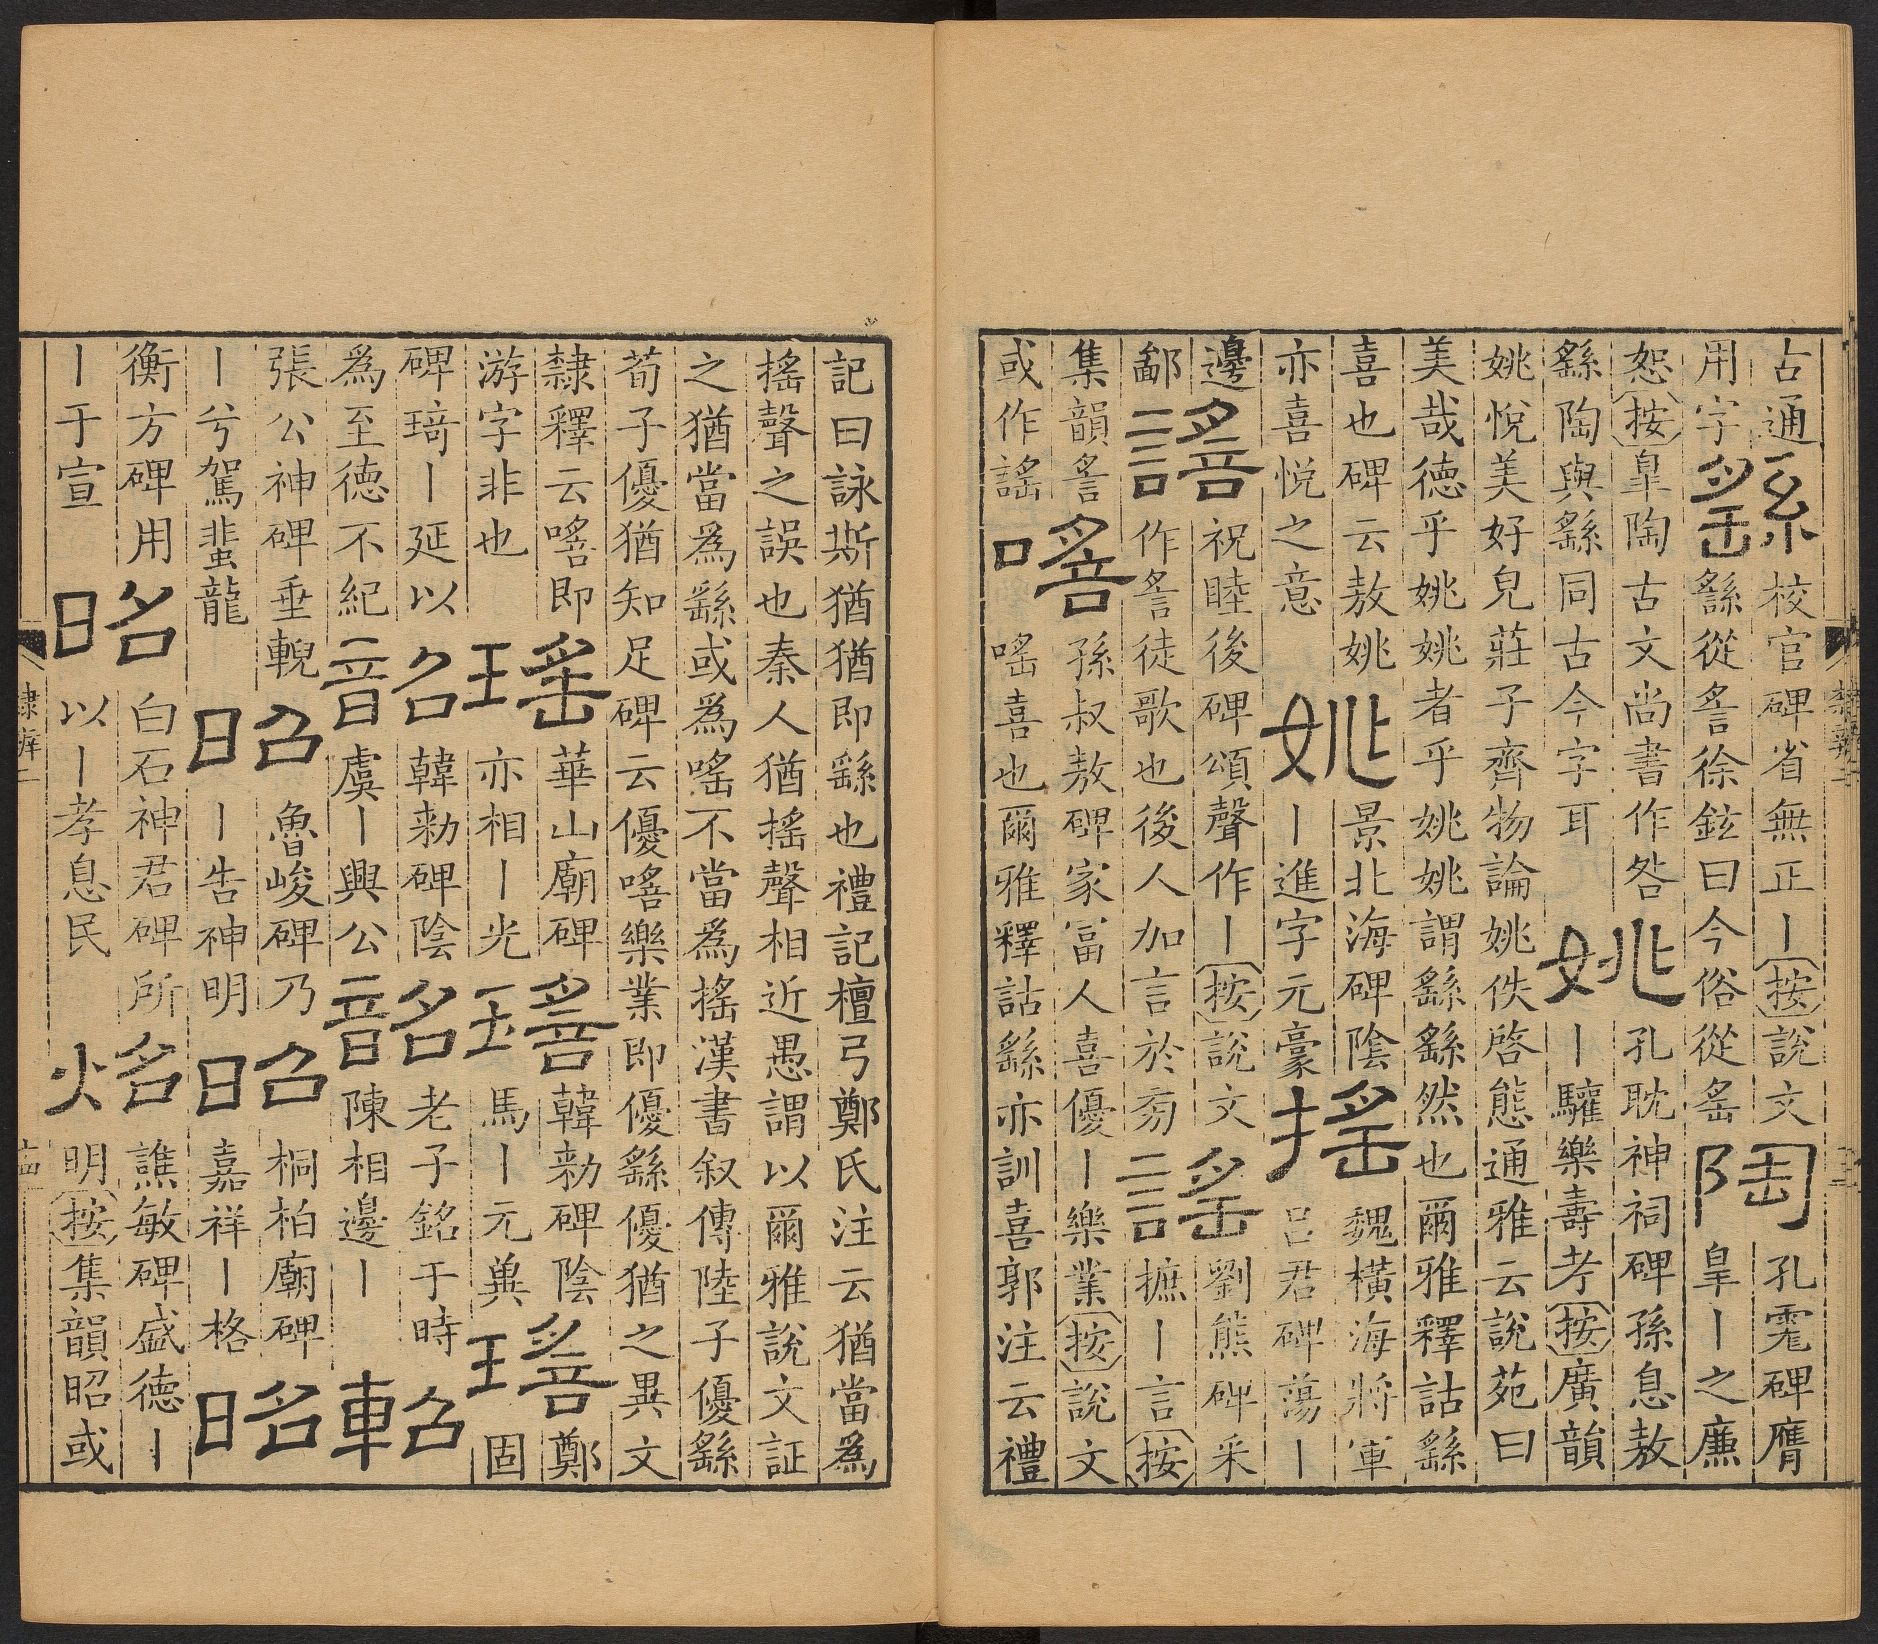 占通
用字
繇
校官碑省無正丨按說文
繇從䚻徐鉉曰今俗從䍃
陶
孔宙碑膺
皐丨之廉
恕按皐陶古文尚書作咎
繇陶與繇同古今字耳
姚
孔耽神祠碑孫息敖
丨驩樂壽考按廣韻
姚悅美好皃莊子齊物論姚佚啓態通雅云說苑曰
美哉德乎姚姚者乎姚姚謂繇繇然也爾雅釋詁繇
喜也碑云敖姚
亦喜悅之意
姚
景北海碑陰
丨進字元豪
搖
魏橫海將軍
呂君碑蕩丨
邊
鄙
謠
祝睦後碑頌聲作丨按說文
作䚻徒歌也後人加言於旁
謠
劉熊碑采
摭丨言按
集韻䚻
或作謠
嗂
孫叔敖碑家冨人喜優丨樂業按說文
嗂喜也爾雅釋詁繇亦訓喜郭注云禮
記曰詠斯猶猶即繇也禮記檀弓鄭氏注云猶當爲
搖聲之誤也秦人猶搖聲相近愚謂以爾雅說文証
之猶當爲繇或爲嗂不當爲搖漢書叙傳陸子優繇
荀子優猶知足碑云優嗂樂業即優繇優猶之異文
隸釋云嗂即
游字非也
瑤
華山廟碑
亦相丨光
瑤
韓勑碑陰
馬丨元冀
瑤
鄭
固
碑琦丨延以
爲至德不紀
韶
韓勑碑陰
虞丨興公
韶
老子銘于時
陳相邊丨
軺
張公神碑垂輗
丨兮駕蜚龍
昭
魯峻碑乃
丨告神明
昭
桐柏廟碑
嘉祥丨格
昭
衡方碑用
丨于宣
昭
白石神君碑所
以丨孝息民
炤
譙敏碑盛德丨
明按集韻昭或